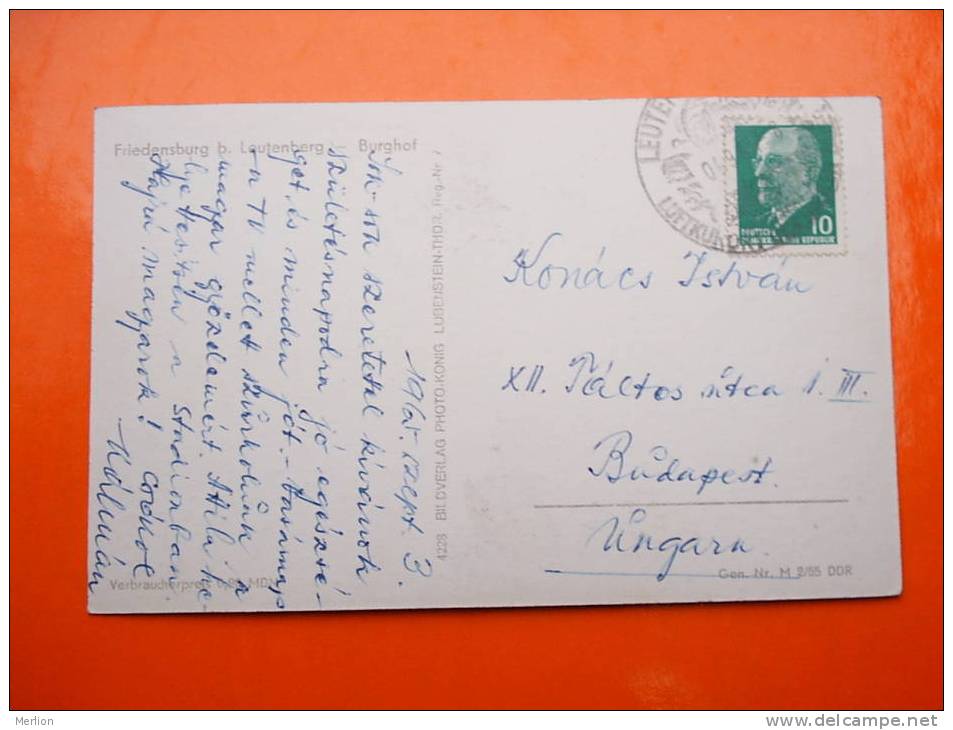 Friedensburg b. Leutenberg Burghof
1965. szept. 3.
szeretettel kívánok
születésnapodra jó egészsé-
get, és minden jót. - Vasárnap
a TV mellet szurkolunk a
magyar győzelemért. Attila he-
lyettesítsen a Stadionban.
Hajrá magyarok! Csókol
Kálmán
Verbraucherpreis MDN
4228 BILDVERLAG PHOTO-KÖNIG LOBENSTEIN-THÜR. Reg.-Nr. 1
LEUTEN
LUFTKURORT
10
DEUTSCHE
DEMOKRATISCHE REPUBLIK
Kovács István
XII. Táltos útca 1. III.
Budapest.
Ungarn.
Gen. Nr. M 2/55 DDR
Merlion
www.delcampe.net